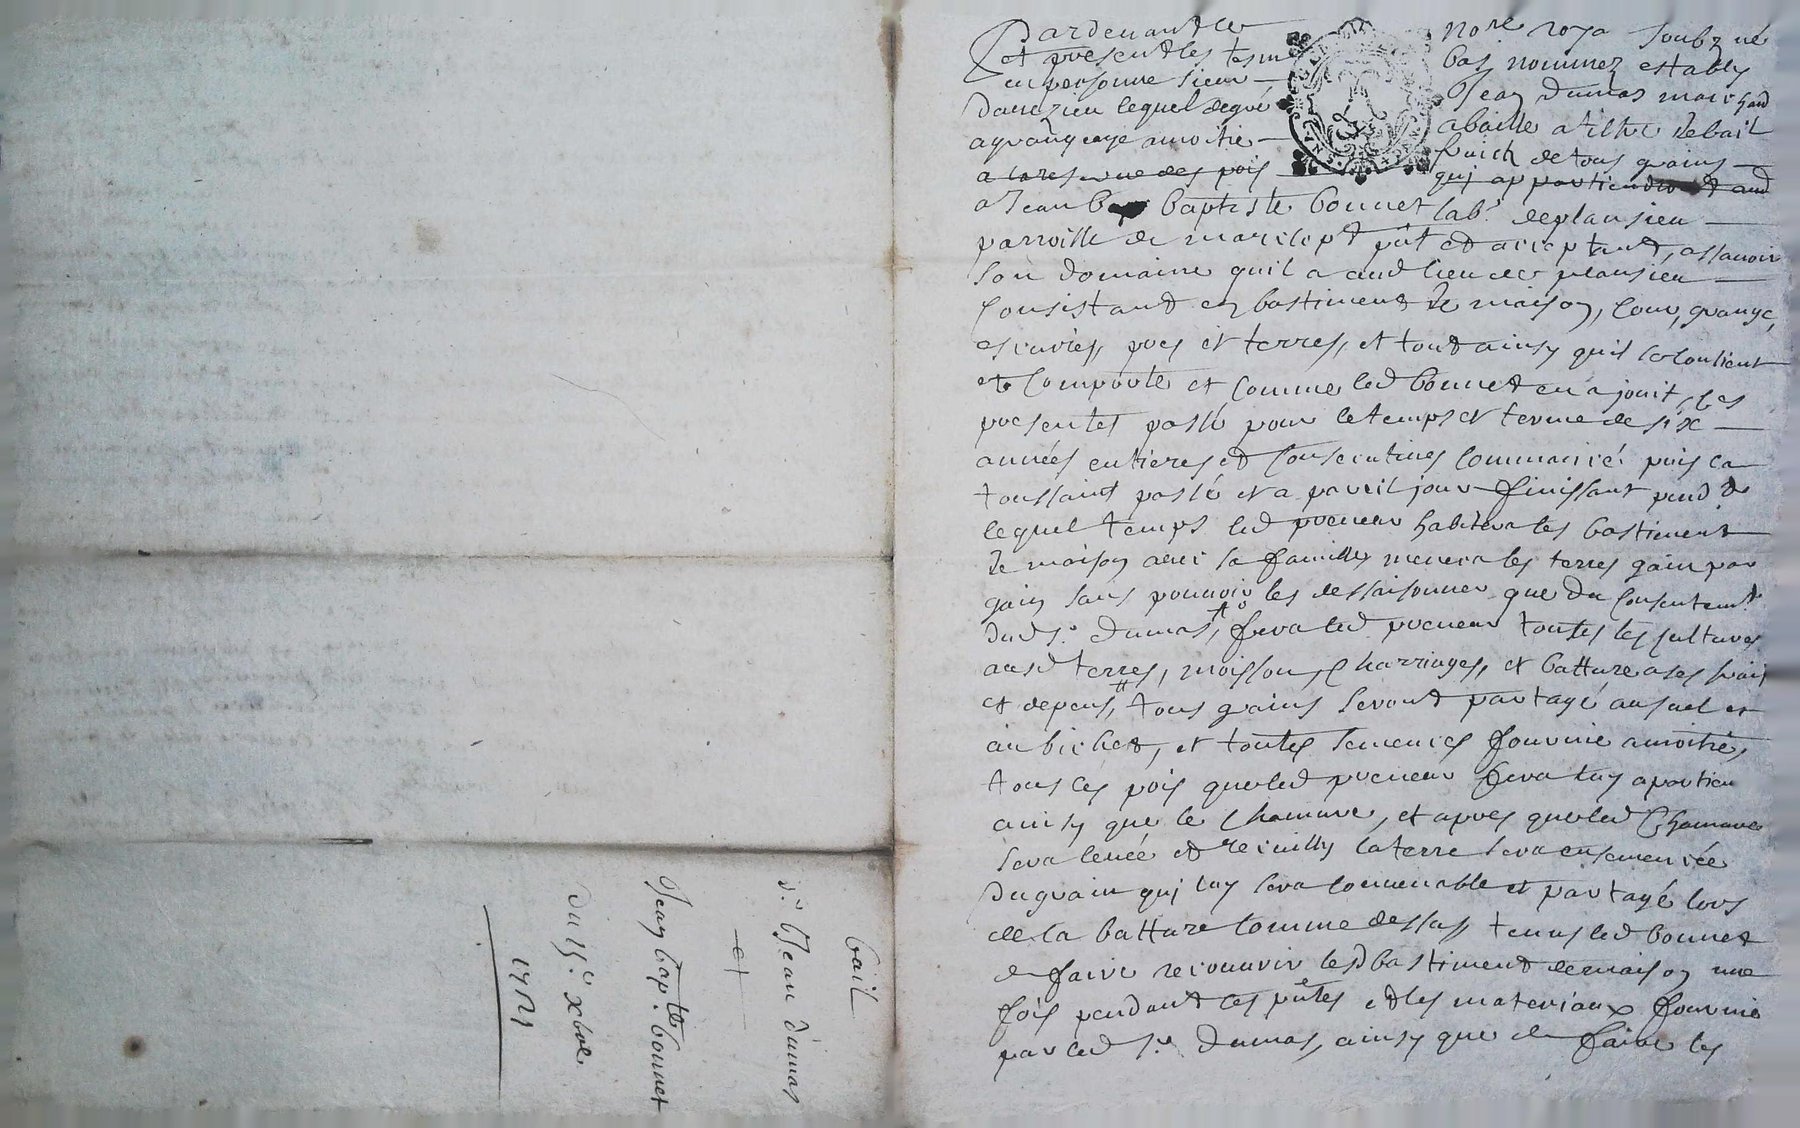 Pardevant le no.re roya soubz.né
et presentes tesm bas nommez estably
en personne sieur Jean dumas marchand
danezieu lequel degré abaille a tiltre de bail
agrangeage amoitie fruich de tous grains
a la reserve des pois qui appartiendront aud
a Jean baptiste bonnet lab.r de plansieu
parroisse de p.nt et acceptant, assavoir
son domaine quil a aud lieu de plansieu
Consistant en bastiment de maison, Cour, grange,
escuries, pres et terres, et tout ainsy quil se Contient
et Comporte et Comme led bonnet en a jouit, les
presentes passé pour le temps et terme de six
années entieres et Consecutives Commancé puis la
toussaint passé et a pareil jour finissant pend.t
lequel temps led preneur habitera les bastiment
de maison avec sa famille menera les terres gain par
gain sans pouvoir les dessaisonner que du Consentem.t
dud s.r dumas, fera led preneur toutes les cultures
ausd terres, moissons Charriages, et batture a ses frais
et depens, tous grains seront partagé au sael et
au bichet, et toutes semences fournie amoitié,
tous les pois que led preneur fera luy apartien
ainsy que le Chanvre, et apres que led Chanvre
sera levée et recuilly la terre sera ensemencée
du grain qui luy sera Convenable et partagé lors
de la batture Comme dessus, tenus led bonnet
de faire recouvrir lesd bastiment de maison une
fois pendant les p.ntes et les materiaux fournie
par led s.r dumas, ainsy que de faire les
bail
s.r Jean dumas
et
Jean bap.te bonnet
du 15.e xbre